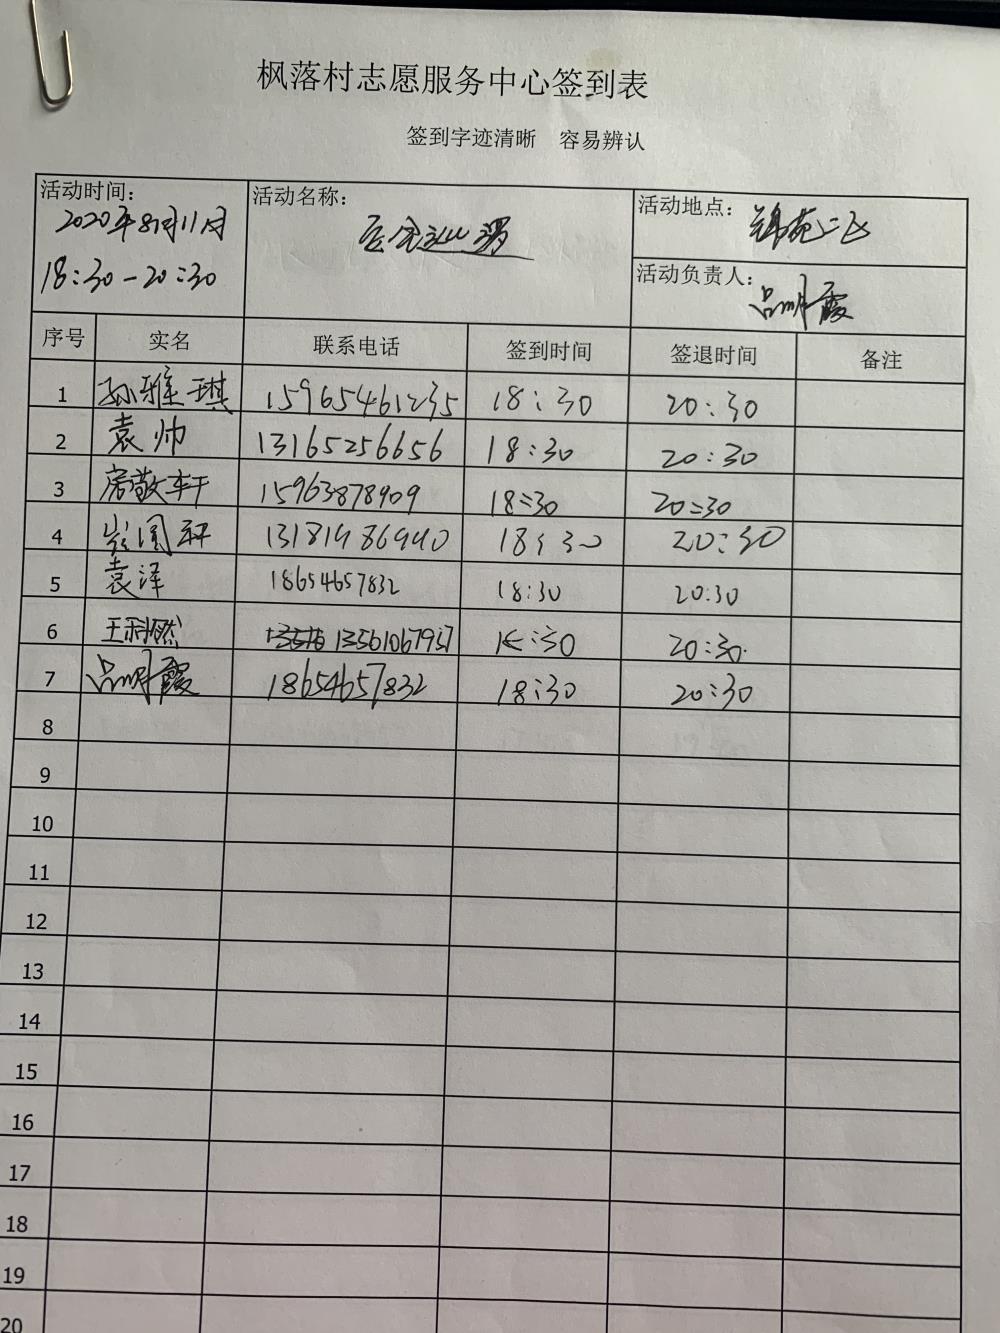 枫落村志愿服务中心签到表
签到字迹清晰 容易辨认
活动时间: 活动名称: 活动地点:
2020年8月11日 锦苑二区
18:30-20:30
活动负责人:
吕明霞
序号 实名 联系电话 签到时间 签退时间 备注
1 孙雅琪 15965461235 18:30 20:30
2 袁帅 13165256656 18:30 20:30
3 房敬轩 15963878909 18:30 20:30
4 13181986940 18:30 20:30
5 袁泽 18654657832 18:30 20:30
6 王利燃 13561067957 18:30 20:30
7 吕明霞 18654657832 18:30 20:30
8
9
10
11
12
13
14
15
16
17
18
19
20